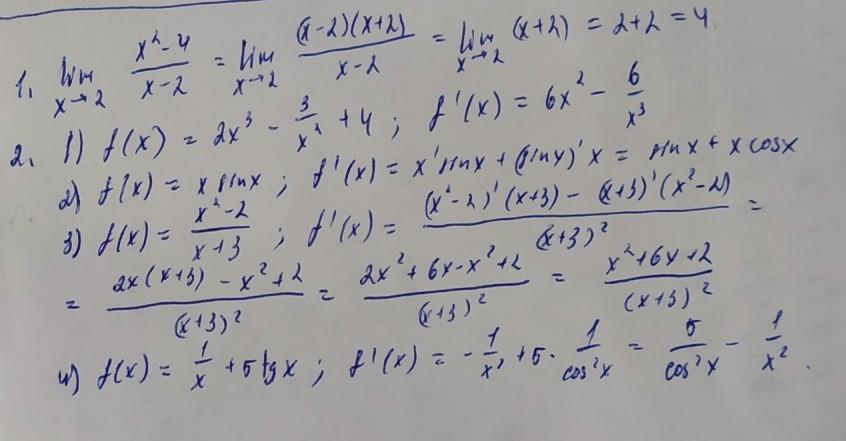 1. lim x→2 (x²-4)/(x-2) = lim x→2 ((x-2)(x+2))/(x-2) = lim x→2 (x+2) = 2+2 = 4
2. 1) f(x) = 2x³ - 3/x² + 4 ; f'(x) = 6x² - 6/x³
2) f(x) = x sinx ; f'(x) = x' sinx + (sinx)' x = sinx + x cosx
3) f(x) = (x²-2)/(x+3) ; f'(x) = ((x²-2)'(x+3) - (x+3)'(x²-2))/(x+3)² =
= (2x(x+3) - x²+2)/(x+3)² = (2x²+6x-x²+2)/(x+3)² = (x²+6x+2)/(x+3)²
4) f(x) = 1/x + 5 tg x ; f'(x) = -1/x² + 5 · 1/cos²x = 5/cos²x - 1/x².